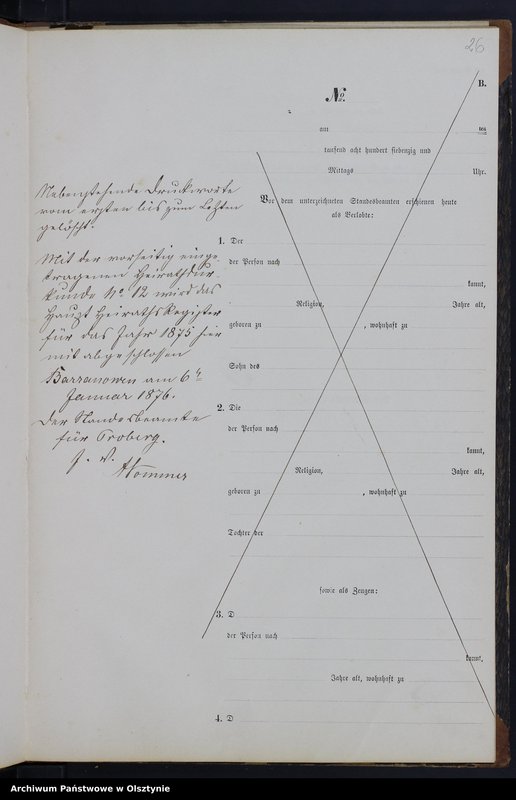 26
B.
No.
am tes
tausend acht hundert siebenzig und
Mittags Uhr.
Vor dem unterzeichneten Standesbeamten erschienen heute
als Verlobte:
1. Der
der Person nach
kannt,
Religion, Jahre alt,
geboren zu , wohnhaft zu
Sohn des
2. Die
der Person nach
kannt,
Religion, Jahre alt,
geboren zu , wohnhaft zu
Tochter der
sowie als Zeugen:
3. D
der Person nach
kannt,
Jahre alt, wohnhaft zu
4. D
Nebenstehende Druckworte
vom ersten bis zum letzten
gelöscht.
Mit der vorseitig einge
tragenen Heirathsur-
kunde No. 12 wird das
Haupt Heiraths Register
für das Jahr 1875 hier
mit abgeschlossen
Barranowen am 6t
Januar 1876.
Der Standesbeamte
für Proberg.
J. V.
Archiwum Państwowe w Olsztynie